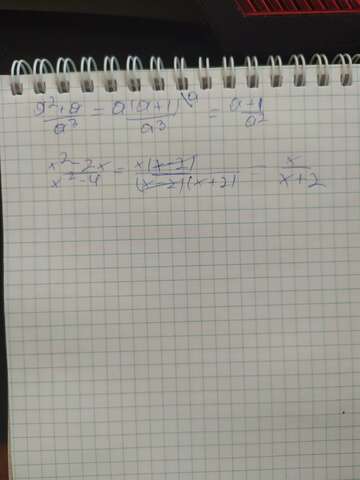 a²+a/a³ = a(a+1)\a/a³ = a+1/a²
x²-2x/x²-4 = x(x-2)/(x-2)(x+2) = x/x+2